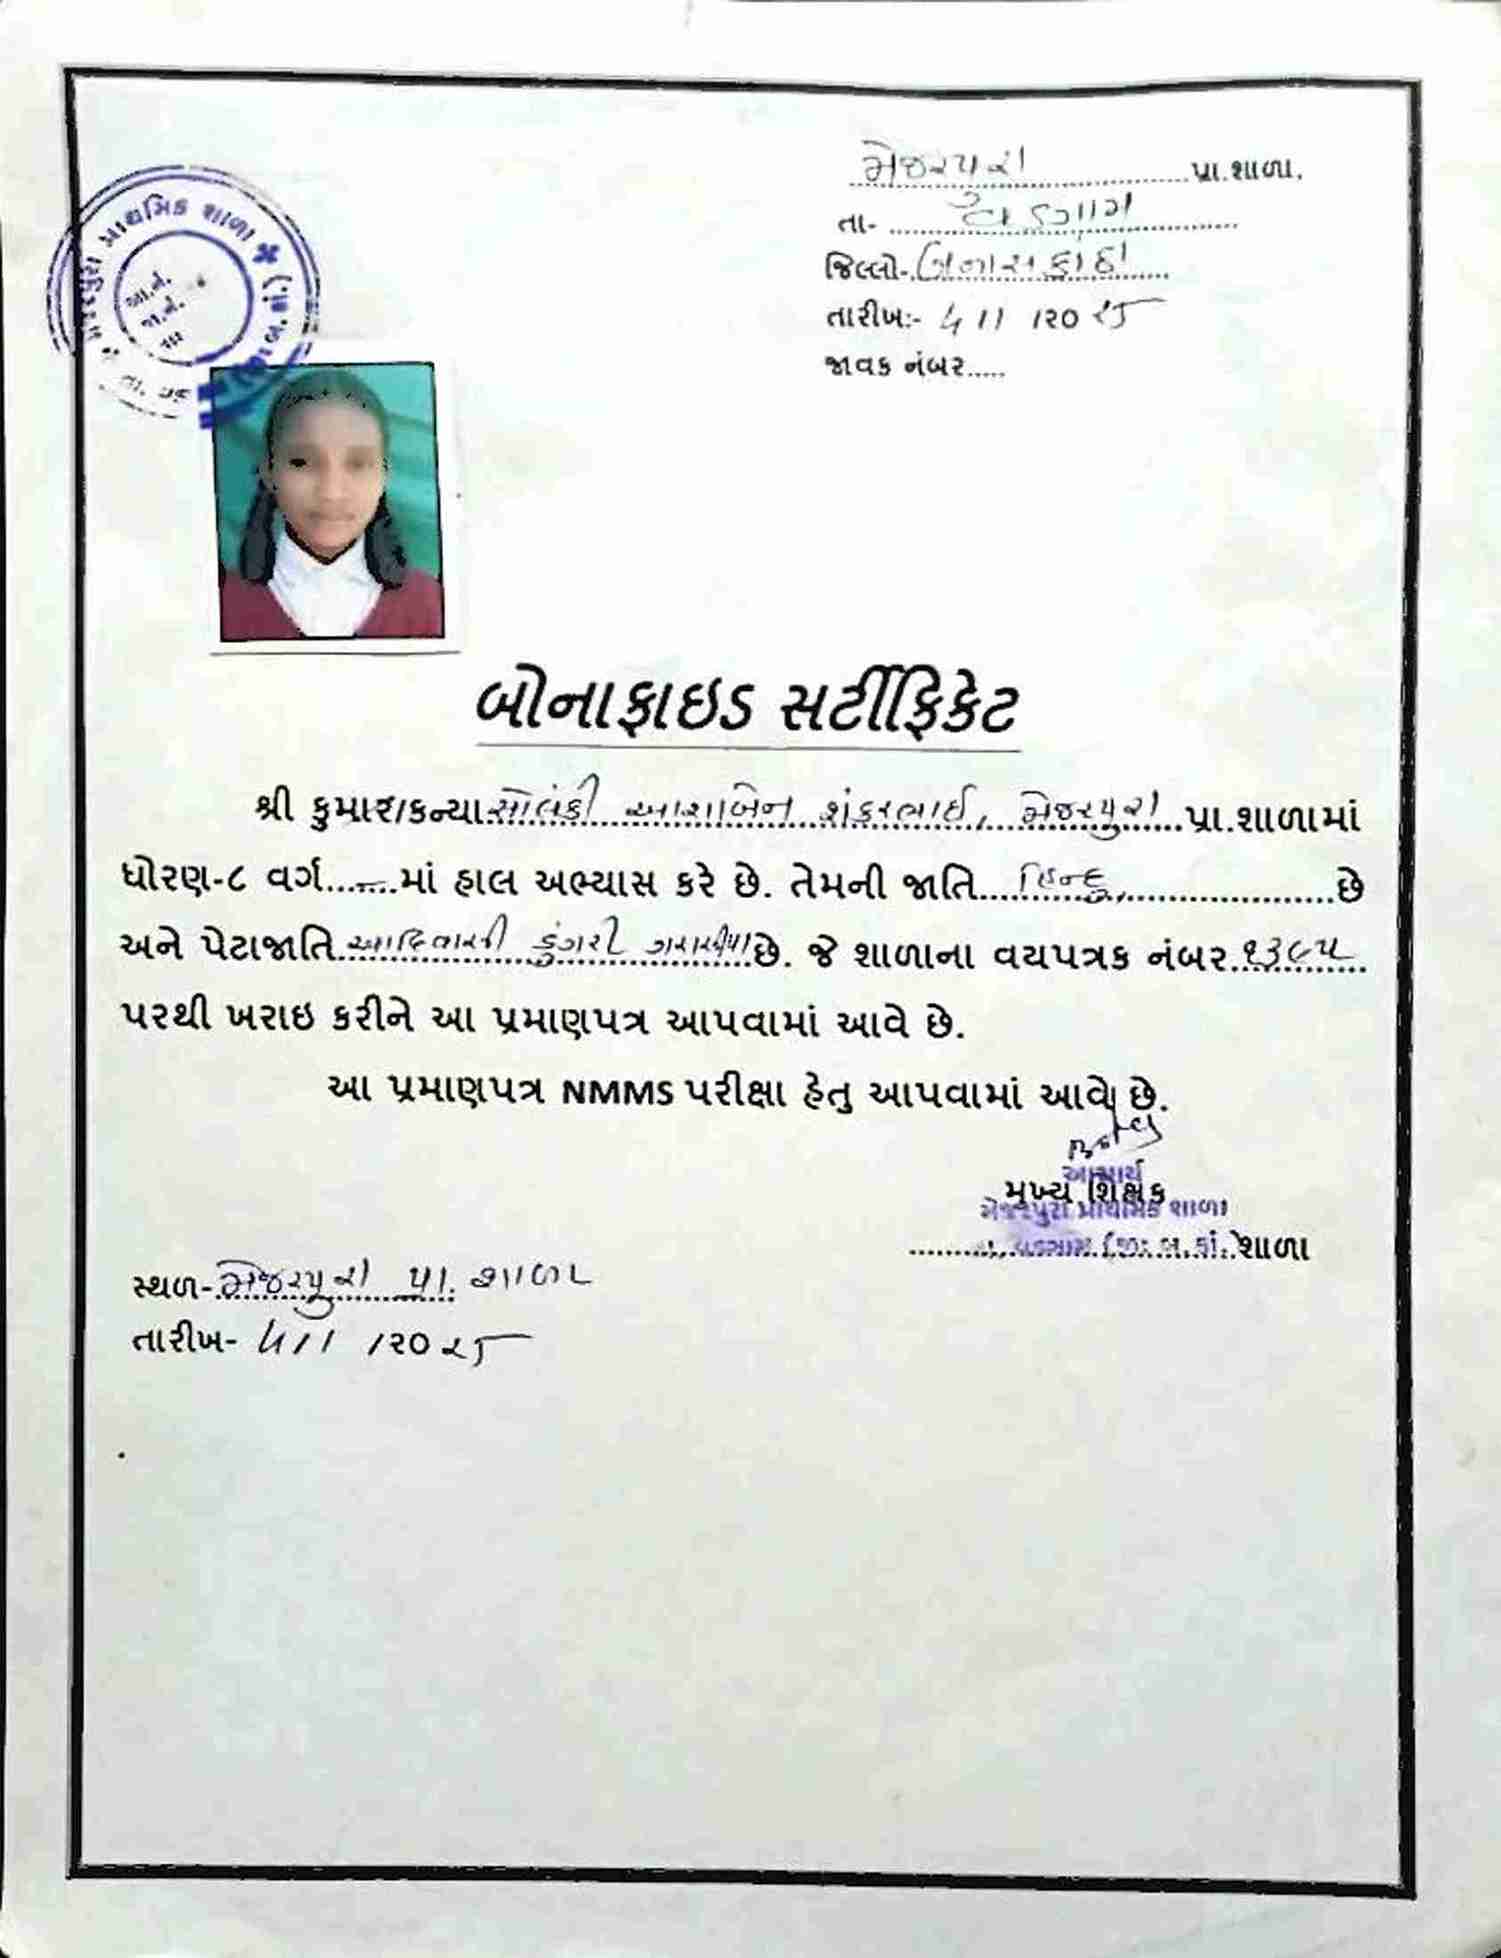 મેજરપુરા પ્રા.શાળા.
તા- વડગામ
જિલ્લો- બનાસકાંઠા
તારીખ:- ૫/૧/૨૦૨૫
જાવક નંબર.....
પ્રાથમિક શાળા
બોનાફાઇડ સર્ટીફિકેટ
શ્રી કુમાર/કન્યા સોલંકી આશાબેન શંકરભાઈ, મેજરપુરા પ્રા.શાળામાં
ધોરણ-૮ વર્ગ.......માં હાલ અભ્યાસ કરે છે. તેમની જાતિ હિન્દુ, છે
અને પેટાજાતિ આદિવાસી ડુંગરી ગરાસીયા છે. જે શાળાના વયપત્રક નંબર ૧૩૮૫
પરથી ખરાઇ કરીને આ પ્રમાણપત્ર આપવામાં આવે છે.
આ પ્રમાણપત્ર NMMS પરીક્ષા હેતુ આપવામાં આવે છે.
આચાર્ય
મુખ્ય શિક્ષક
મેજરપુરા પ્રાથમિક શાળા
તા. વડગામ (જી. બ. કાં.) શાળા
સ્થળ- મેજરપુરા પ્રા. શાળા
તારીખ- ૫/૧/૨૦૨૫